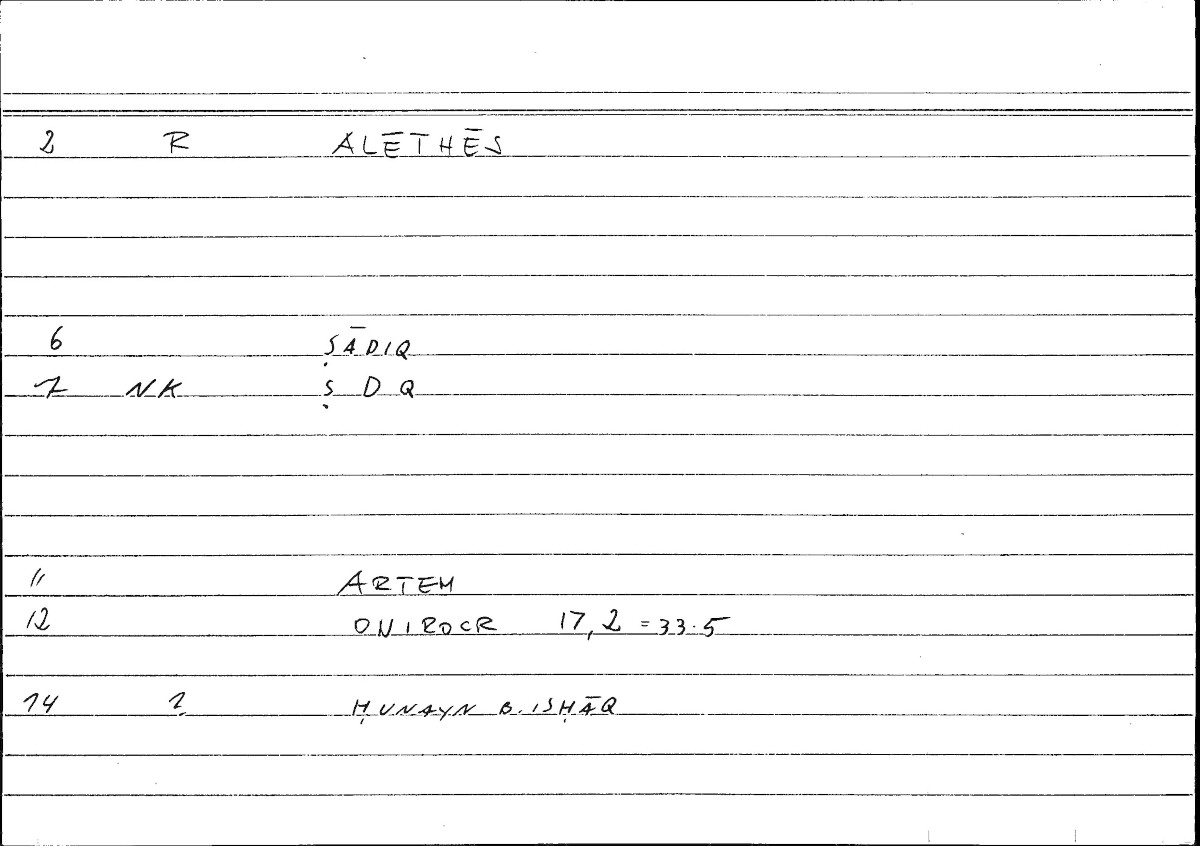 2 R ALĒTHĒS
6 ṢĀDIQ
7 NK Ṣ D Q
11 ARTEM
12 ONIROCR 17,2 = 33.5
14 2 ḤUNAYN B. ISḤĀQ